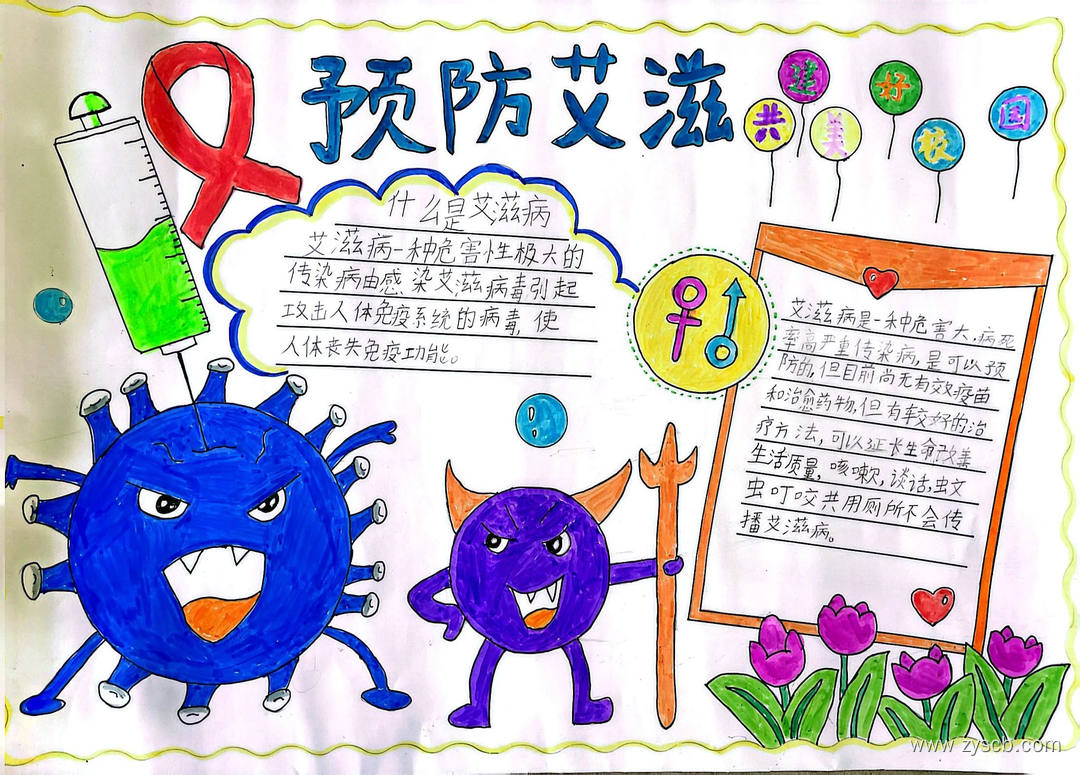 预防艾滋
共建美好校园
什么是艾滋病
艾滋病一种危害性极大的
传染病由感染艾滋病毒引起
攻击人体免疫系统的病毒,使
人体丧失免疫功能。
艾滋病是一种危害大,病死
率高严重传染病,是可以预
防的,但目前尚无有效疫苗
和治愈药物,但有较好的治
疗方法,可以延长生命改善
生活质量,咳嗽,谈话,蚊
虫叮咬共用厕所不会传
播艾滋病。
www.zyscb.com